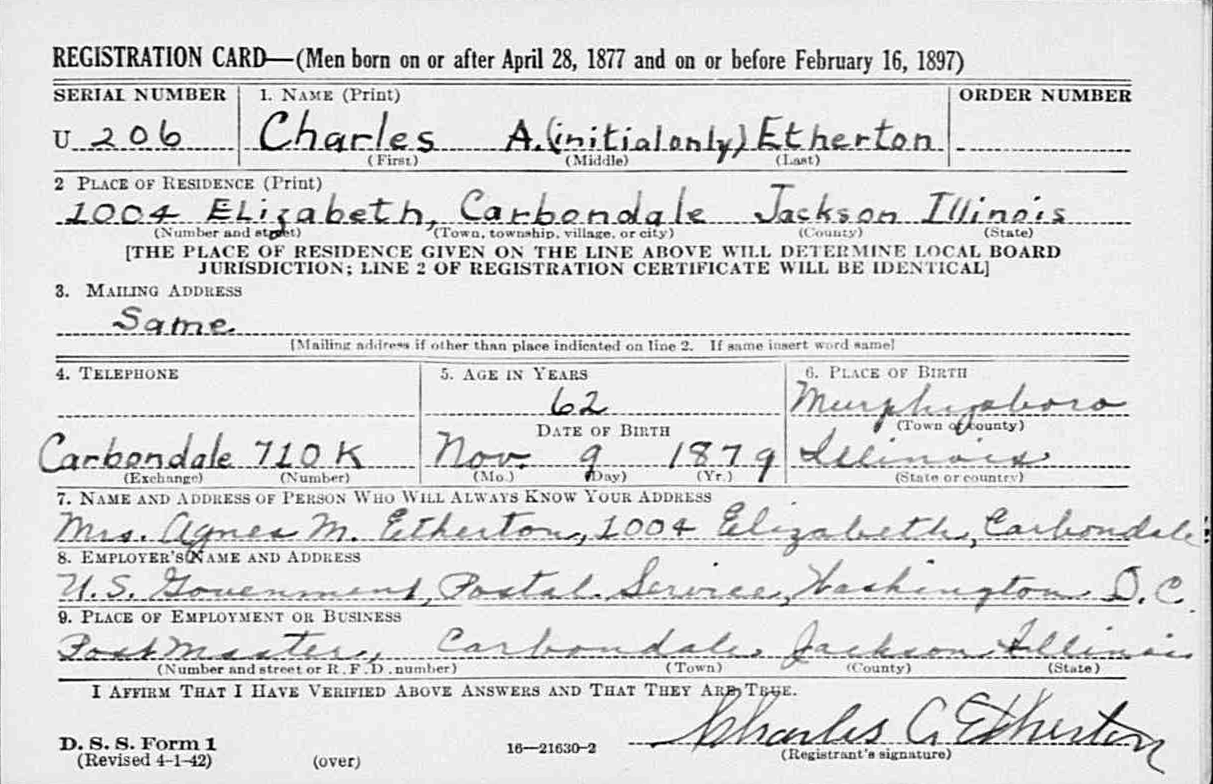 REGISTRATION CARD—(Men born on or after April 28, 1877 and on or before February 16, 1897)
SERIAL NUMBER 1. NAME (Print) ORDER NUMBER
U 206 Charles A.(initial only) Etherton
(First) (Middle) (Last)
2 PLACE OF RESIDENCE (Print)
1004 Elizabeth, Carbondale Jackson Illinois
(Number and street) (Town, township, village, or city) (County) (State)
[THE PLACE OF RESIDENCE GIVEN ON THE LINE ABOVE WILL DETERMINE LOCAL BOARD
JURISDICTION; LINE 2 OF REGISTRATION CERTIFICATE WILL BE IDENTICAL]
3. MAILING ADDRESS
Same
[Mailing address if other than place indicated on line 2. If same insert word same]
4. TELEPHONE 5. AGE IN YEARS 6. PLACE OF BIRTH
62 Murphysboro
DATE OF BIRTH (Town or county)
Carbondale 710K Nov. 9 1879 Illinois
(Exchange) (Number) (Mo.) (Day) (Yr.) (State or country)
7. NAME AND ADDRESS OF PERSON WHO WILL ALWAYS KNOW YOUR ADDRESS
Mrs. Agnes M. Etherton, 1004 Elizabeth, Carbondale
8. EMPLOYER'S NAME AND ADDRESS
U.S. Govenment, Postal Service, Washington D.C.
9. PLACE OF EMPLOYMENT OR BUSINESS
Post Master, Carbondale, Jackson Illinois
(Number and street or R. F. D. number) (Town) (County) (State)
I AFFIRM THAT I HAVE VERIFIED ABOVE ANSWERS AND THAT THEY ARE TRUE.
Charles A Etherton
D. S. S. Form 1 16—21630-2 (Registrant's signature)
(Revised 4-1-42) (over)